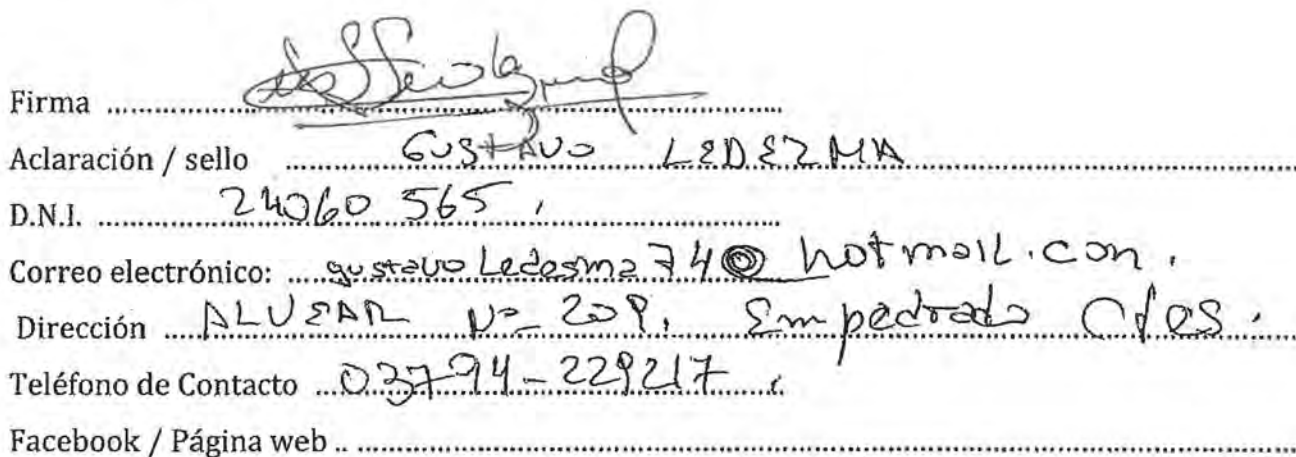 Firma
Aclaración / sello GUSTAVO LEDEZMA
D.N.I. 24060 565
Correo electrónico: gustavoLedesma74@hotmail.com.
Dirección ALVEAR Nº 209. Empedrado Ctes.
Teléfono de Contacto 03794-229217
Facebook / Página web ..